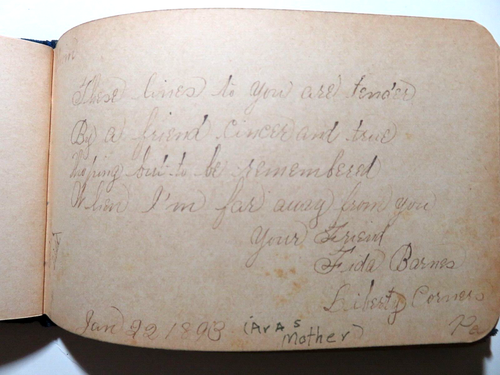 These lines to you are tender
By a friend cincer and true
Hoping but to be remembered
When I'm far away from you
Your Friend
Fida Barnes
Liberty Corners
Pa
Jan 22 1893 (Aras
Mother)